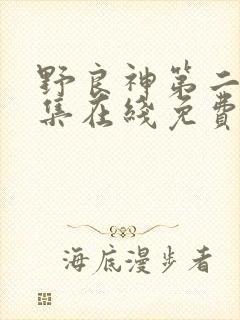 野良神第二
集在綫免費
海底漫步者